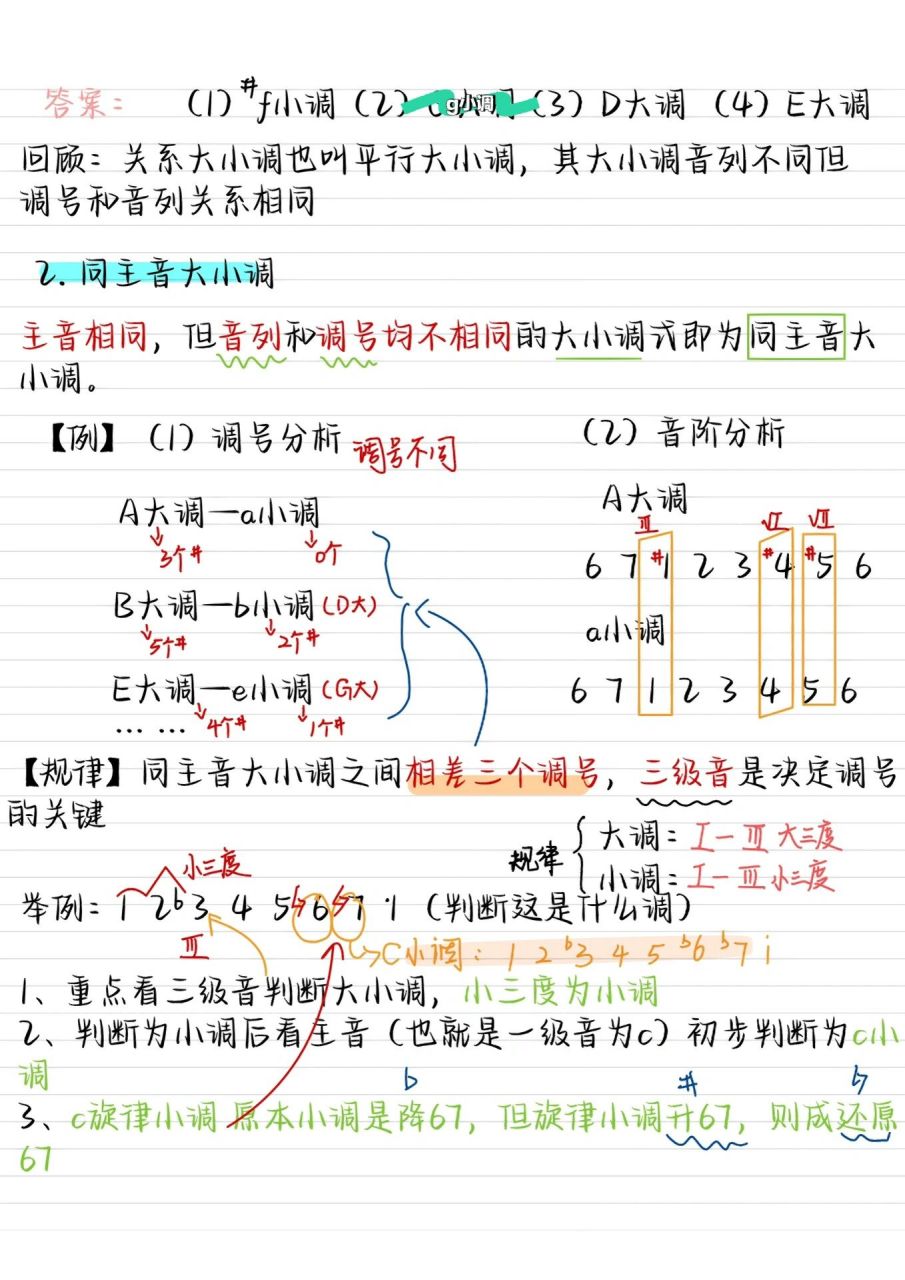 答案： （1）#f小调（2）g小调（3）D大调 （4）E大调
回顾：关系大小调也叫平行大小调，其大小调音列不同但
调号和音列关系相同
2. 同主音大小调
主音相同，但音列和调号均不相同的大小调式即为同主音大
小调。
【例】（1）调号分析 调号不同
A大调—a小调
3个# 0个
B大调—b小调(D大)
5个# 2个#
E大调—e小调(G大)
4个# 1个#
... ...
（2）音阶分析
A大调
Ⅲ Ⅵ Ⅶ
6 7 #1 2 3 #4 #5 6
a小调
6 7 1 2 3 4 5 6
【规律】同主音大小调之间相差三个调号，三级音是决定调号
的关键
规律 大调：Ⅰ—Ⅲ 大三度
小调：Ⅰ—Ⅲ 小三度
小三度
举例：1 2 b3 4 5 ♮6 ♮7 1（判断这是什么调）
Ⅲ
C小调：1 2 b3 4 5 b6 b7 i
1、重点看三级音判断大小调，小三度为小调
2、判断为小调后看主音（也就是一级音为c）初步判断为c小
调
b # ♮
3、c旋律小调 原本小调是降67，但旋律小调升67，则成还原
67